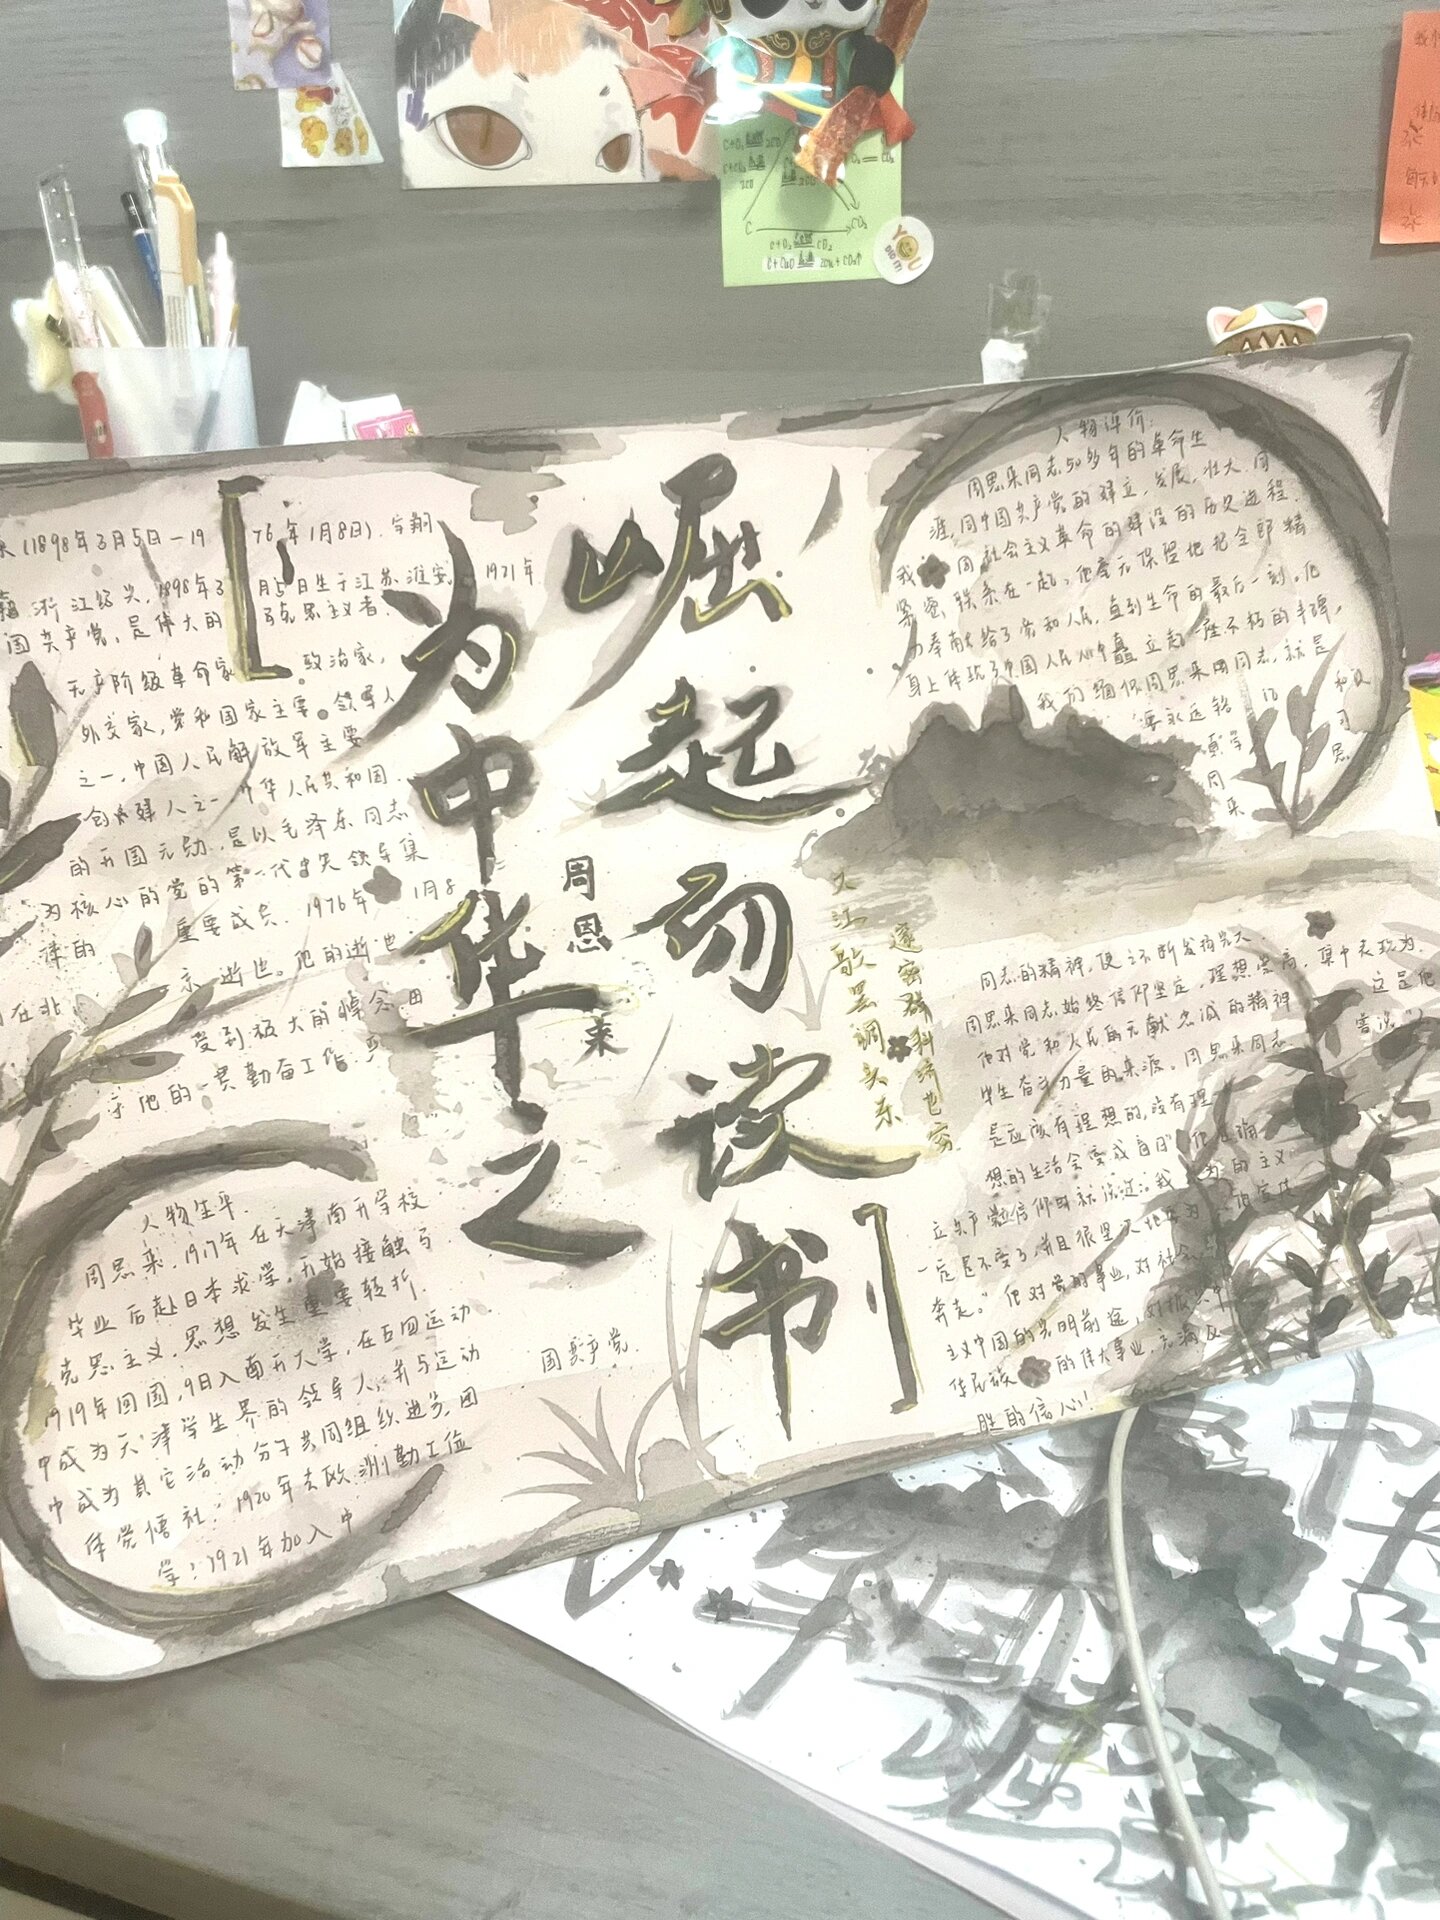 为中华之
崛起而读书
周恩来
大江歌罢掉头东
邃密群科济世穷
(1898年3月5日-1976年1月8日),字翔
浙江绍兴,1898年3月5日生于江苏淮安 1921年
国共产党,是伟大的马克思主义者
无产阶级革命家 政治家,
外交家,党和国家主要领导人
之一,中国人民解放军主要
创建人之一,中华人民共和国
的开国元勋,是以毛泽东同志
为核心的党的第一代中央领导集
体的重要成员.1976年1月8
在北京逝世。他的逝世
受到极大的悼念
他的一贯勤奋工作
人物生平.
周恩来.1917年在天津南开学校
毕业后赴日本求学,开始接触马
克思主义,思想发生重要转折.
1919年回国,9日入南开大学,在五四运动
中成为天津学生界的领导人,并与运动
中成为其它活动分子共同组织进步团
体觉悟社;1920年去欧洲勤工俭
学;1921年加入中
国共产党.
人物评价:
周恩来同志50多年的革命生
涯,同中国共产党的建立,发展,壮大,同
我国社会主义革命的建设的历史进程.
紧密联系在一起。他毫无保留地把全部精
力奉献给了党和人民,直到生命的最后一刻。他
身上体现了中国人民心中矗立起一座不朽的丰碑,
我们缅怀周恩来同志,就是
要永远铭记
同志的精神,使之不断发扬光大
周恩来同志始终信仰坚定,理想崇高,集中表现为
他对党和人民的无献忠诚的精神 这是他
毕生奋斗力量的来源。周恩来同志 曾说"人
是应该有理想的,没有理
想的生活会变成盲目"
立共产党信仰时就说过:我 的主义
一定是不变了,并且很坚决地要为 宣传
奔走。"他对党的事业,对社会
主义中国的光明前途,对振兴中
华民族的伟大事业,充满
胜的信心!
C+O₂
CO₂
C
YOU
DID IT!